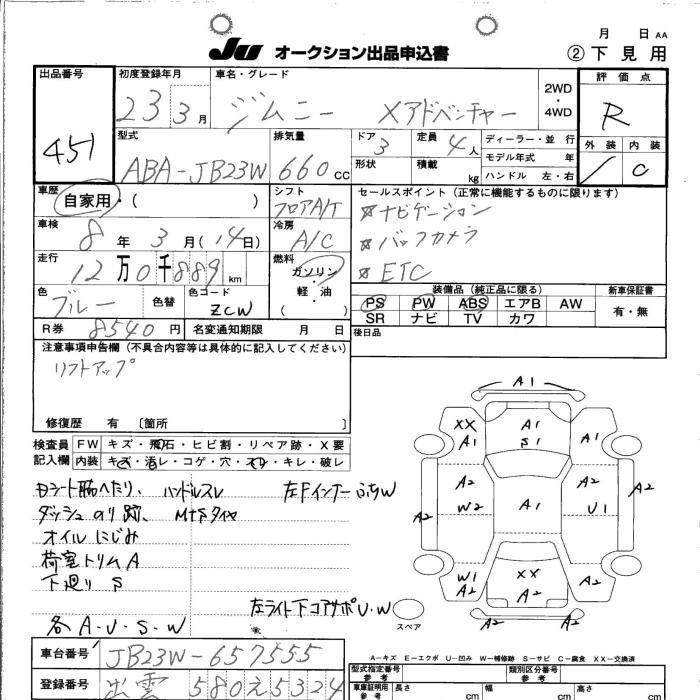 月 日 AA
JU オークション出品申込書 ② 下見用
出品番号 451
初度登録年月 23 3月
車名・グレード ジムニー Xアドベンチャー
2WD・4WD
評価点 R
外装 / 内装 C
型式 ABA-JB23W
排気量 660 cc
ドア 3
定員 4人
形状
積載 kg
ディーラー・並行
モデル年式 年
ハンドル 左・右
車歴 自家用・( )
シフト フロアA/T
セールスポイント (正常に機能するものに限ります)
☆ナビゲーション
☆バックカメラ
☆ETC
車検 8年 3月 (14日)
冷房 A/C
走行 12万0千889km
燃料 ガソリン 軽・油 ( )
色 ブルー 色替
色コード ZCW
装備品 (純正品に限る)
PS PW ABS エアB AW
SR ナビ TV カワ
新車保証書 有・無
R券 8540円 名変通知期限 月 日
後日品
注意事項申告欄 (不具合内容等は具体的に記入してください)
リフトアップ
修復歴 有 [箇所 ]
検査員記入欄
FW キズ・飛石・ヒビ割・リペア跡・X要
内装 キズ・汚レ・コゲ・穴・スレ・キレ・破レ
Dシート脇へたり、ハンドルスレ
左FインナーふちW
ダッシュのり跡、M+Sタイヤ
オイルにじみ
荷室トリムA
下廻りS
左ライト下コアサポU・W
各A・U・S・W
A1
XX
A1
A1
S1
A1
A2
W2
A2
A1
A2
U1
A2
W1
A2
XX
A2
A2
A2
スペア
A−キズ E−エクボ U−凹み W−補修跡 S−サビ C−腐食 XX−交換済
車台番号 JB23W-657555
登録番号 出雲 580 え 5324
型式指定番号 参考
類別区分番号 参考
車庫証明用 参考 長さ cm 幅 cm 高さ cm